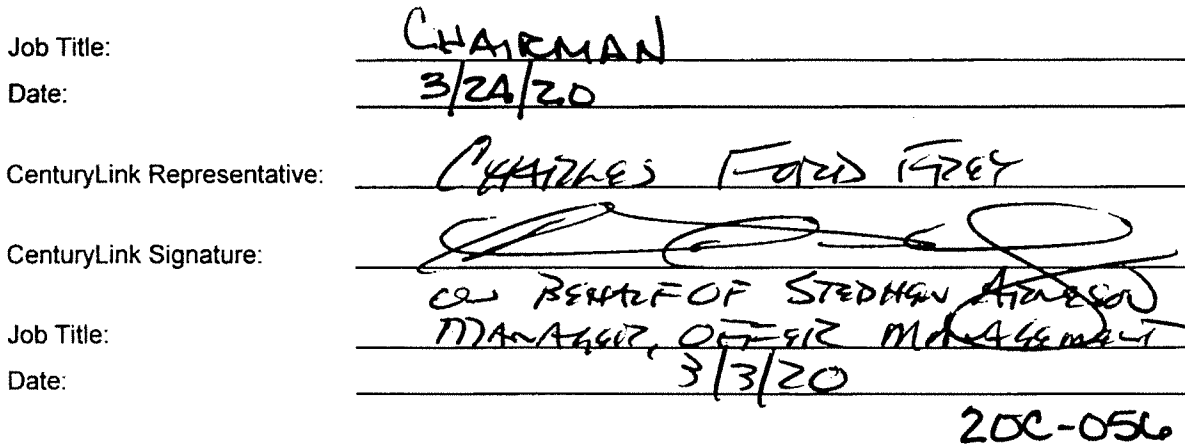 Job Title: CHAIRMAN
Date: 3/24/20
CenturyLink Representative: CHARLES FORD FREY
CenturyLink Signature:
ON BEHALF OF STEPHEN ARNESON
Job Title: MANAGER, OFFER MANAGEMENT
Date: 3/3/20
20C-056